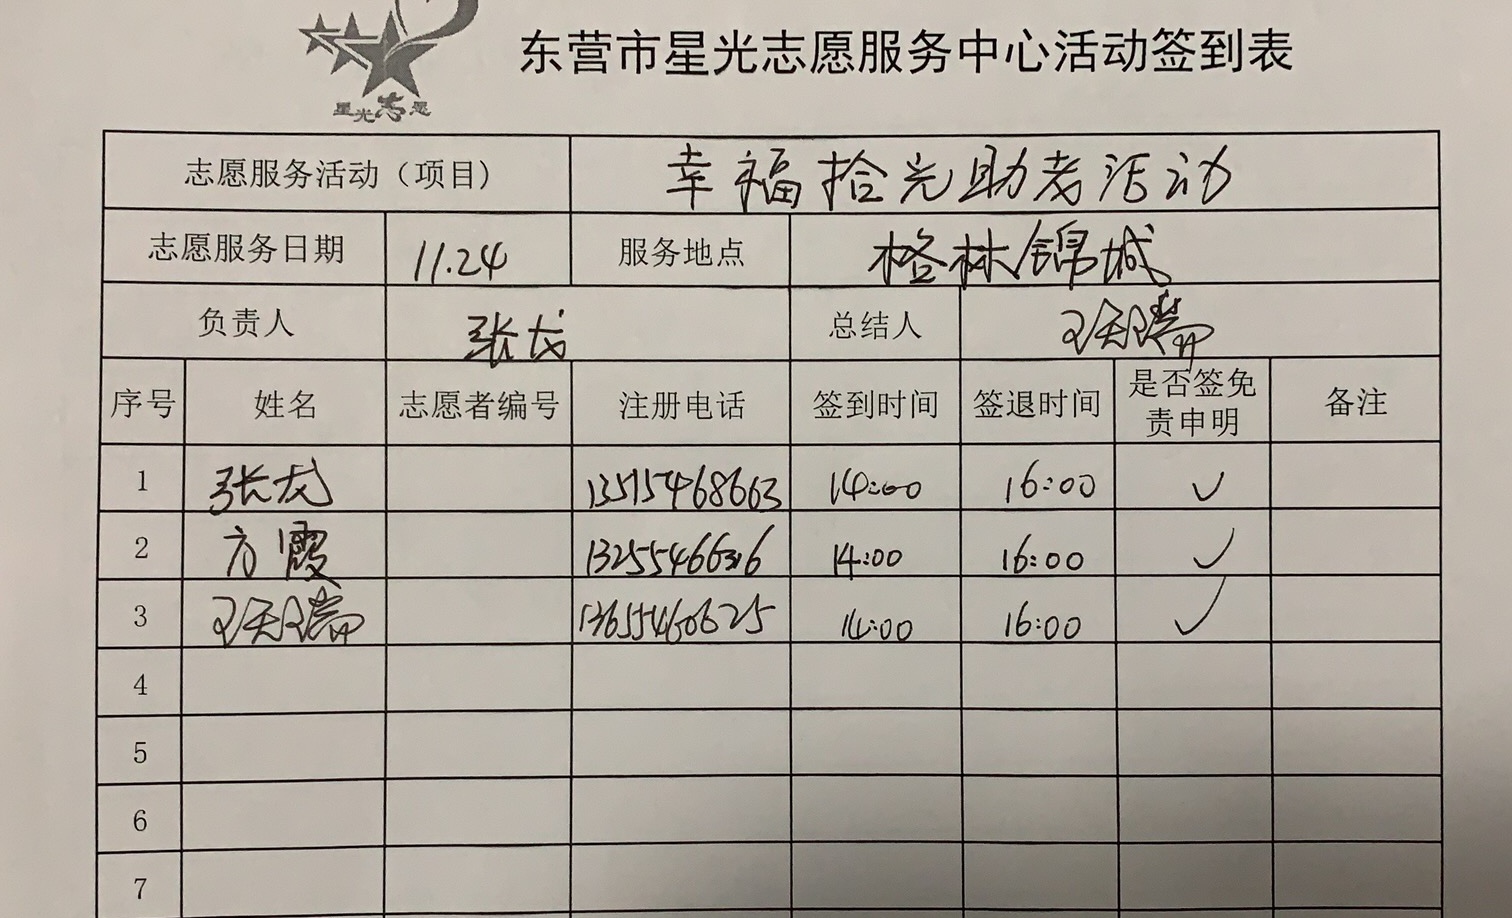 星光志愿
东营市星光志愿服务中心活动签到表
志愿服务活动（项目) 幸福拾光助老活动
志愿服务日期 11.24 服务地点 格林锦城
负责人 张龙 总结人
序号 姓名 志愿者编号 注册电话 签到时间 签退时间 是否签免责申明 备注
1 张龙 13515468663 14:00 16:00 ✓
2 方霞 14:00 16:00 ✓
3 13655460625 14:00 16:00 ✓
4
5
6
7